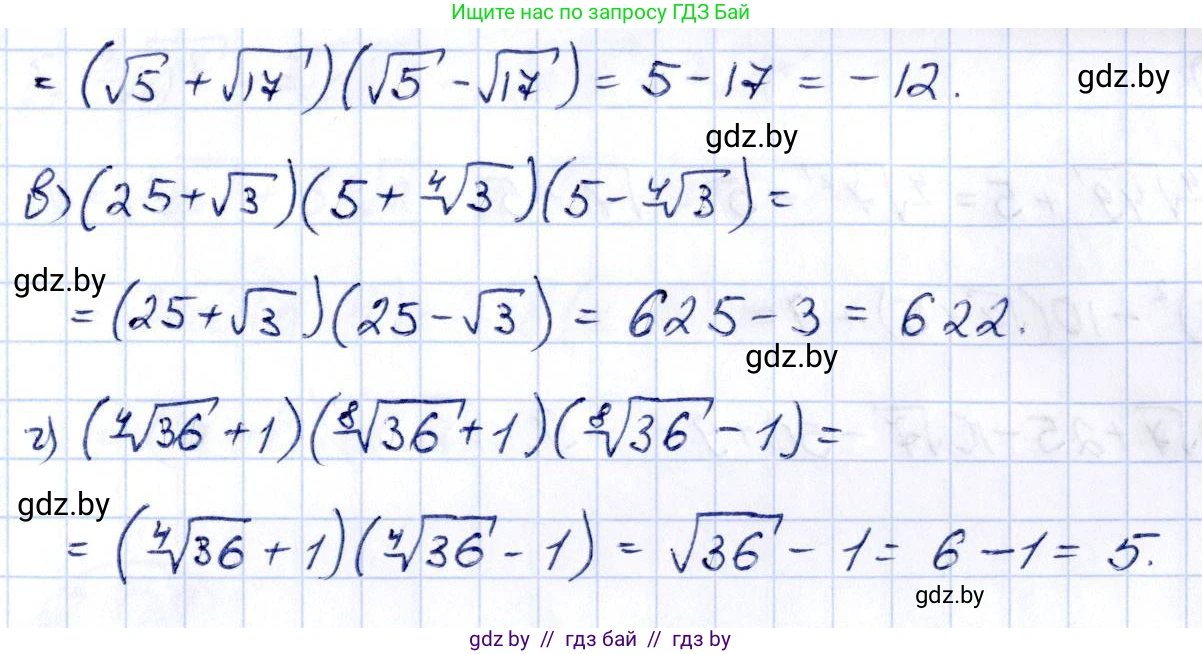 Ищите нас по запросу ГДЗ Бай
= (√5 + √17)(√5 - √17) = 5 - 17 = -12.
gdz.by
gdz.by
в) (25 + √3)(5 + ⁴√3)(5 - ⁴√3) =
gdz.by
= (25 + √3)(25 - √3) = 625 - 3 = 622.
gdz.by
г) (⁴√36 + 1)(⁸√36 + 1)(⁸√36 - 1) =
gdz.by
= (⁴√36 + 1)(⁴√36 - 1) = √36 - 1 = 6 - 1 = 5.
gdz.by
gdz.by // гдз бай // гдз by